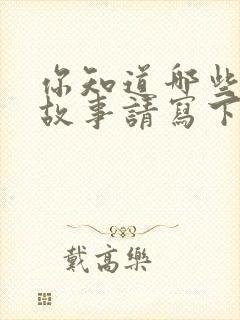 你知道哪些
故事請寫下
戴高樂